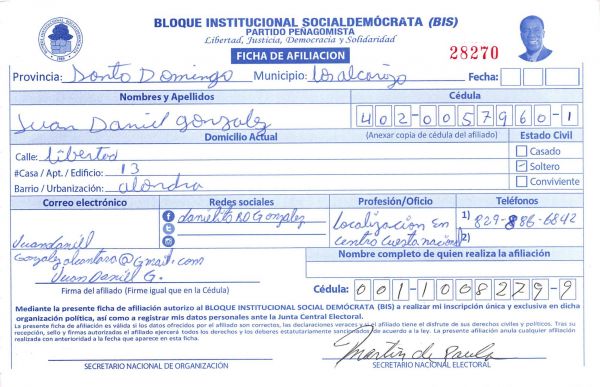 BLOQUE INSTITUCIONAL SOCIALDEMÓCRATA (BIS)
PARTIDO PEÑAGOMISTA
Libertad, Justicia, Democracia y Solidaridad
FICHA DE AFILIACION
28270
Provincia: Santo Domingo Municipio: Los alcarrizo Fecha:
Nombres y Apellidos
Cédula
Juan Daniel gonzalez
402-0057960-1
Domicilio Actual
(Anexar copia de cédula del afiliado)
Estado Civil
Calle: libertad
Casado
#Casa / Apt. / Edificio: 13
Soltero
Barrio / Urbanización: alondra
Conviviente
Correo electrónico
Redes sociales
Profesión/Oficio
Teléfonos
danielito RD Gonzalez
Localizacion En
centro Cuesta nacional
1) 829-886-6842
2)
Juandaniel
Gonzalezalcantara@Gmail.com
Nombre completo de quien realiza la afiliación
Juan Daniel G.
Firma del afiliado (Firme igual que en la Cédula)
Cédula: 001-1008279-9
Mediante la presente ficha de afiliación autorizo al BLOQUE INSTITUCIONAL SOCIAL DEMÓCRATA (BIS) a realizar mi inscripción única y exclusiva en dicha
organización política, así como a registrar mis datos personales ante la Junta Central Electoral.
La presente ficha de afiliación es válida si los datos ofrecidos por el afiliado son correctos, las declaraciones veraces y si el afiliado tiene el disfrute de sus derechos civiles y políticos. Tras su
recepción, sello y firmas autorizadas el afiliado ejercerá todos los derechos y los deberes estatutariamente sancionados de acuerdo a la ley. La presente afiliación anula cualquier afiliación
realizada con anterioridad a la fecha que aparece en esta ficha.
Martin de Paula
SECRETARIO NACIONAL DE ORGANIZACIÓN
SECRETARIO NACIONAL ELECTORAL